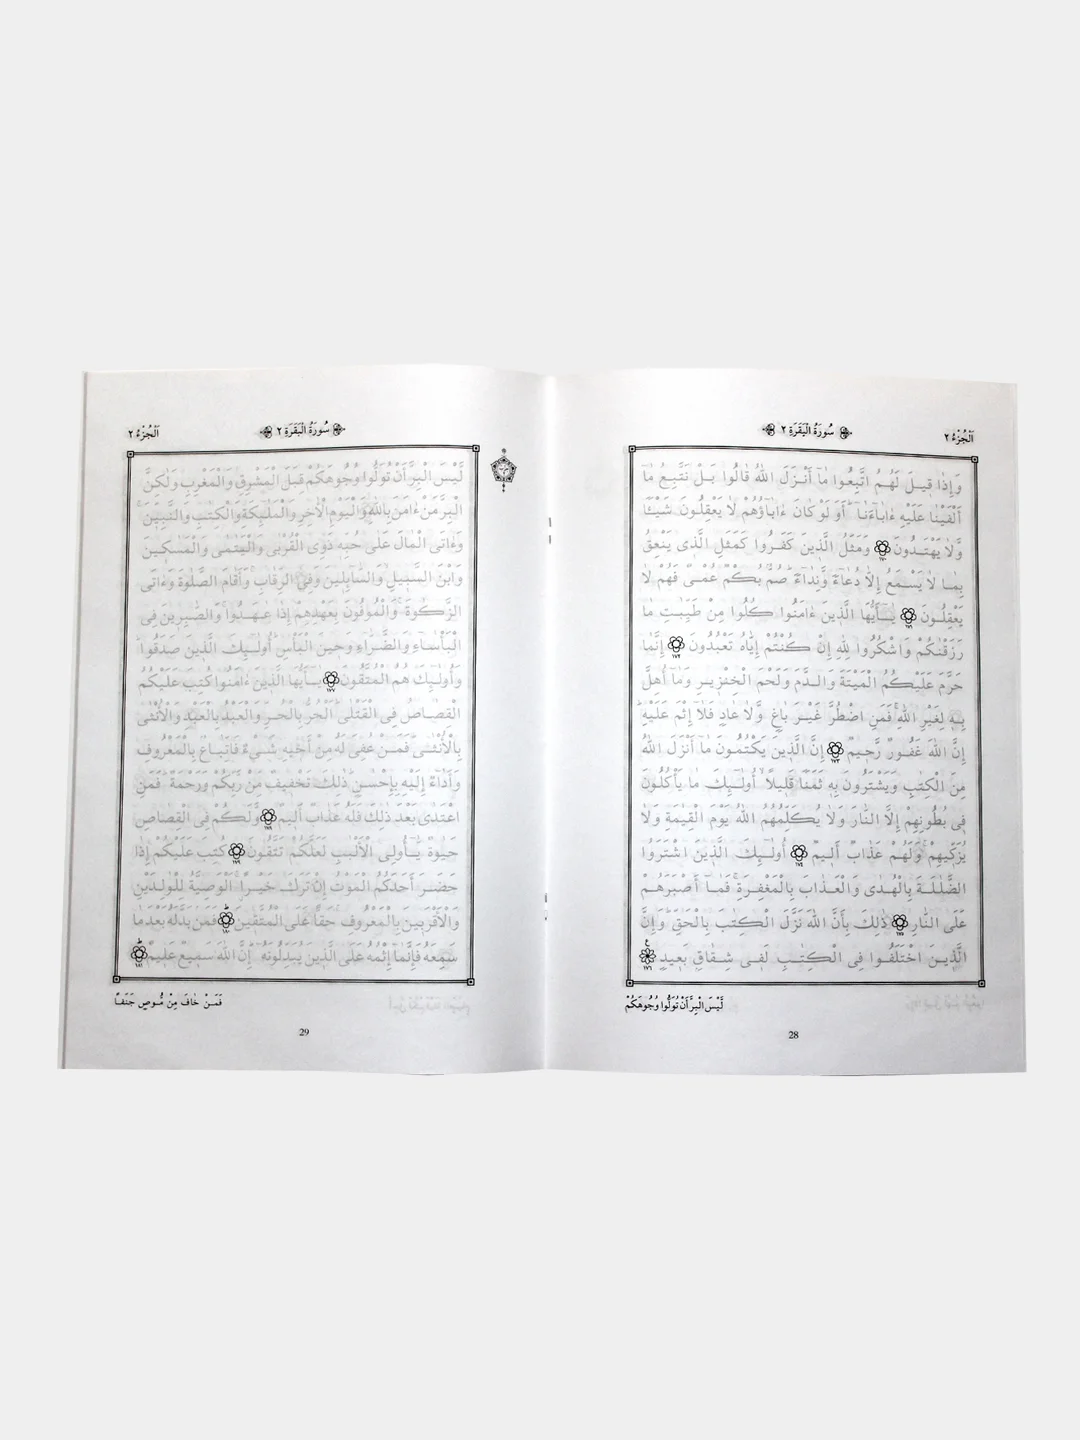 اَلْجُزْءُ ٢
سُورَةُ الْبَقَرَةِ ٢
وَإِذَا قِيلَ لَهُمُ اتَّبِعُوا مَآ أَنْزَلَ اللّٰهُ قَالُوا بَلْ نَتَّبِعُ مَآ
أَلْفَيْنَا عَلَيْهِ ءَابَآءَنَا ۗ أَوَلَوْ كَانَ ءَابَآؤُهُمْ لَا يَعْقِلُونَ شَيْـًٔا
وَّلَا يَهْتَدُونَ ١٧٠ وَمَثَلُ الَّذِينَ كَفَرُوا كَمَثَلِ الَّذِى يَنْعِقُ
بِمَا لَا يَسْمَعُ إِلَّا دُعَآءً وَّنِدَآءً ۗ صُمٌّۢ بُكْمٌ عُمْىٌ فَهُمْ لَا
يَعْقِلُونَ ١٧١ يَـٰٓأَيُّهَا الَّذِينَ ءَامَنُوا كُلُوا مِنْ طَيِّبٰتِ مَا
رَزَقْنٰكُمْ وَاشْكُرُوا لِلّٰهِ إِنْ كُنْتُمْ إِيَّاهُ تَعْبُدُونَ ١٧٢ إِنَّمَا
حَرَّمَ عَلَيْكُمُ الْمَيْتَةَ وَالدَّمَ وَلَحْمَ الْخِنْزِيرِ وَمَآ أُهِلَّ
بِهِۦ لِغَيْرِ اللّٰهِ ۚ فَمَنِ اضْطُرَّ غَيْرَ بَاغٍ وَّلَا عَادٍ فَلَآ إِثْمَ عَلَيْهِ ۗ
إِنَّ اللّٰهَ غَفُورٌ رَّحِيمٌ ١٧٣ إِنَّ الَّذِينَ يَكْتُمُونَ مَآ أَنْزَلَ اللّٰهُ
مِنَ الْكِتٰبِ وَيَشْتَرُونَ بِهِۦ ثَمَنًا قَلِيلًا ۙ أُولٰٓئِكَ مَا يَأْكُلُونَ
فِى بُطُونِهِمْ إِلَّا النَّارَ وَلَا يُكَلِّمُهُمُ اللّٰهُ يَوْمَ الْقِيٰمَةِ وَلَا
يُزَكِّيهِمْ ۚ وَلَهُمْ عَذَابٌ أَلِيمٌ ١٧٤ أُولٰٓئِكَ الَّذِينَ اشْتَرَوُا
الضَّلٰلَةَ بِالْهُدٰى وَالْعَذَابَ بِالْمَغْفِرَةِ ۚ فَمَآ أَصْبَرَهُمْ
عَلَى النَّارِ ١٧٥ ذٰلِكَ بِأَنَّ اللّٰهَ نَزَّلَ الْكِتٰبَ بِالْحَقِّ ۗ وَإِنَّ
الَّذِينَ اخْتَلَفُوا فِى الْكِتٰبِ لَفِى شِقَاقٍۢ بَعِيدٍ ١٧٦
لَيْسَ الْبِرَّ أَنْ تُوَلُّوا وُجُوهَكُمْ
28
سُورَةُ الْبَقَرَةِ ٢
اَلْجُزْءُ ٢
لَّيْسَ الْبِرَّ أَنْ تُوَلُّوا وُجُوهَكُمْ قِبَلَ الْمَشْرِقِ وَالْمَغْرِبِ وَلٰكِنَّ
الْبِرَّ مَنْ ءَامَنَ بِاللّٰهِ وَالْيَوْمِ الْأٰخِرِ وَالْمَلٰٓئِكَةِ وَالْكِتٰبِ وَالنَّبِيِّينَ ۚ
وَءَاتَى الْمَالَ عَلٰى حُبِّهِۦ ذَوِى الْقُرْبٰى وَالْيَتٰمٰى وَالْمَسٰكِينَ
وَابْنَ السَّبِيلِ وَالسَّآئِلِينَ وَفِى الرِّقَابِ ۚ وَأَقَامَ الصَّلٰوةَ وَءَاتَى
الزَّكٰوةَ ۚ وَالْمُوفُونَ بِعَهْدِهِمْ إِذَا عٰهَدُوا ۚ وَالصّٰبِرِينَ فِى
الْبَأْسَآءِ وَالضَّرَّآءِ وَحِينَ الْبَأْسِ ۗ أُولٰٓئِكَ الَّذِينَ صَدَقُوا ۗ
وَأُولٰٓئِكَ هُمُ الْمُتَّقُونَ ١٧٧ يَـٰٓأَيُّهَا الَّذِينَ ءَامَنُوا كُتِبَ عَلَيْكُمُ
الْقِصَاصُ فِى الْقَتْلٰى ۗ الْحُرُّ بِالْحُرِّ وَالْعَبْدُ بِالْعَبْدِ وَالْأُنْثٰى
بِالْأُنْثٰى ۗ فَمَنْ عُفِىَ لَهُۥ مِنْ أَخِيهِ شَىْءٌ فَاتِّبَاعٌۢ بِالْمَعْرُوفِ
وَأَدَآءٌ إِلَيْهِ بِإِحْسٰنٍ ۗ ذٰلِكَ تَخْفِيفٌ مِّنْ رَّبِّكُمْ وَرَحْمَةٌ ۗ فَمَنِ
اعْتَدٰى بَعْدَ ذٰلِكَ فَلَهُۥ عَذَابٌ أَلِيمٌ ١٧٨ وَلَكُمْ فِى الْقِصَاصِ
حَيٰوةٌ يَّـٰٓأُولِى الْأَلْبٰبِ لَعَلَّكُمْ تَتَّقُونَ ١٧٩ كُتِبَ عَلَيْكُمْ إِذَا
حَضَرَ أَحَدَكُمُ الْمَوْتُ إِنْ تَرَكَ خَيْرًا ۖ الْوَصِيَّةُ لِلْوٰلِدَيْنِ
وَالْأَقْرَبِينَ بِالْمَعْرُوفِ ۚ حَقًّا عَلَى الْمُتَّقِينَ ١٨٠ فَمَنْ بَدَّلَهُۥ بَعْدَمَا
سَمِعَهُۥ فَإِنَّمَآ إِثْمُهُۥ عَلَى الَّذِينَ يُبَدِّلُونَهُۥ ۗ إِنَّ اللّٰهَ سَمِيعٌ عَلِيمٌ ١٨١
فَمَنْ خَافَ مِنْ مُّوصٍ جَنَفًا
29